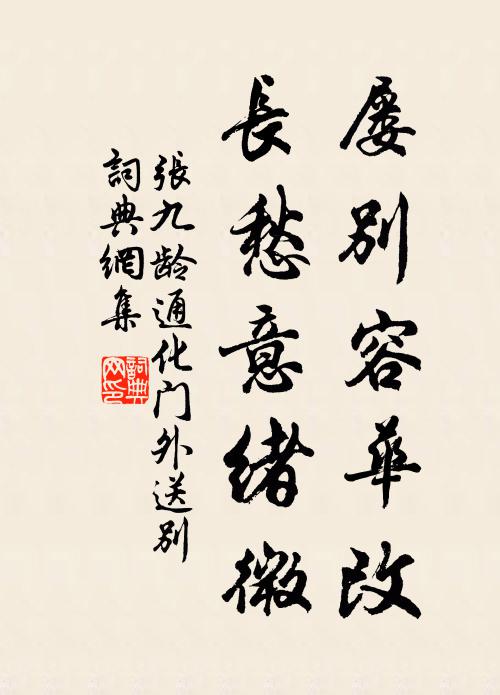 屡別容華改
長愁意緒微
張九龄通化门外送别
詞典網集
詞典网印